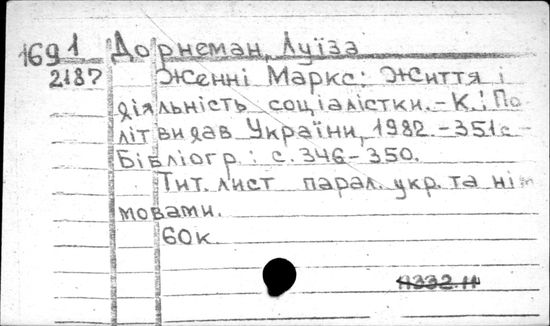 1691 Дорнеман, Луїза
2187 Женні Маркс: Життя і
діяльність соціалістки. - К.: По-
літвидав України, 1982. - 351 с. -
Бібліогр.: с. 346-350.
Тит. лист парал. укр. та нім
мовами.
60к.